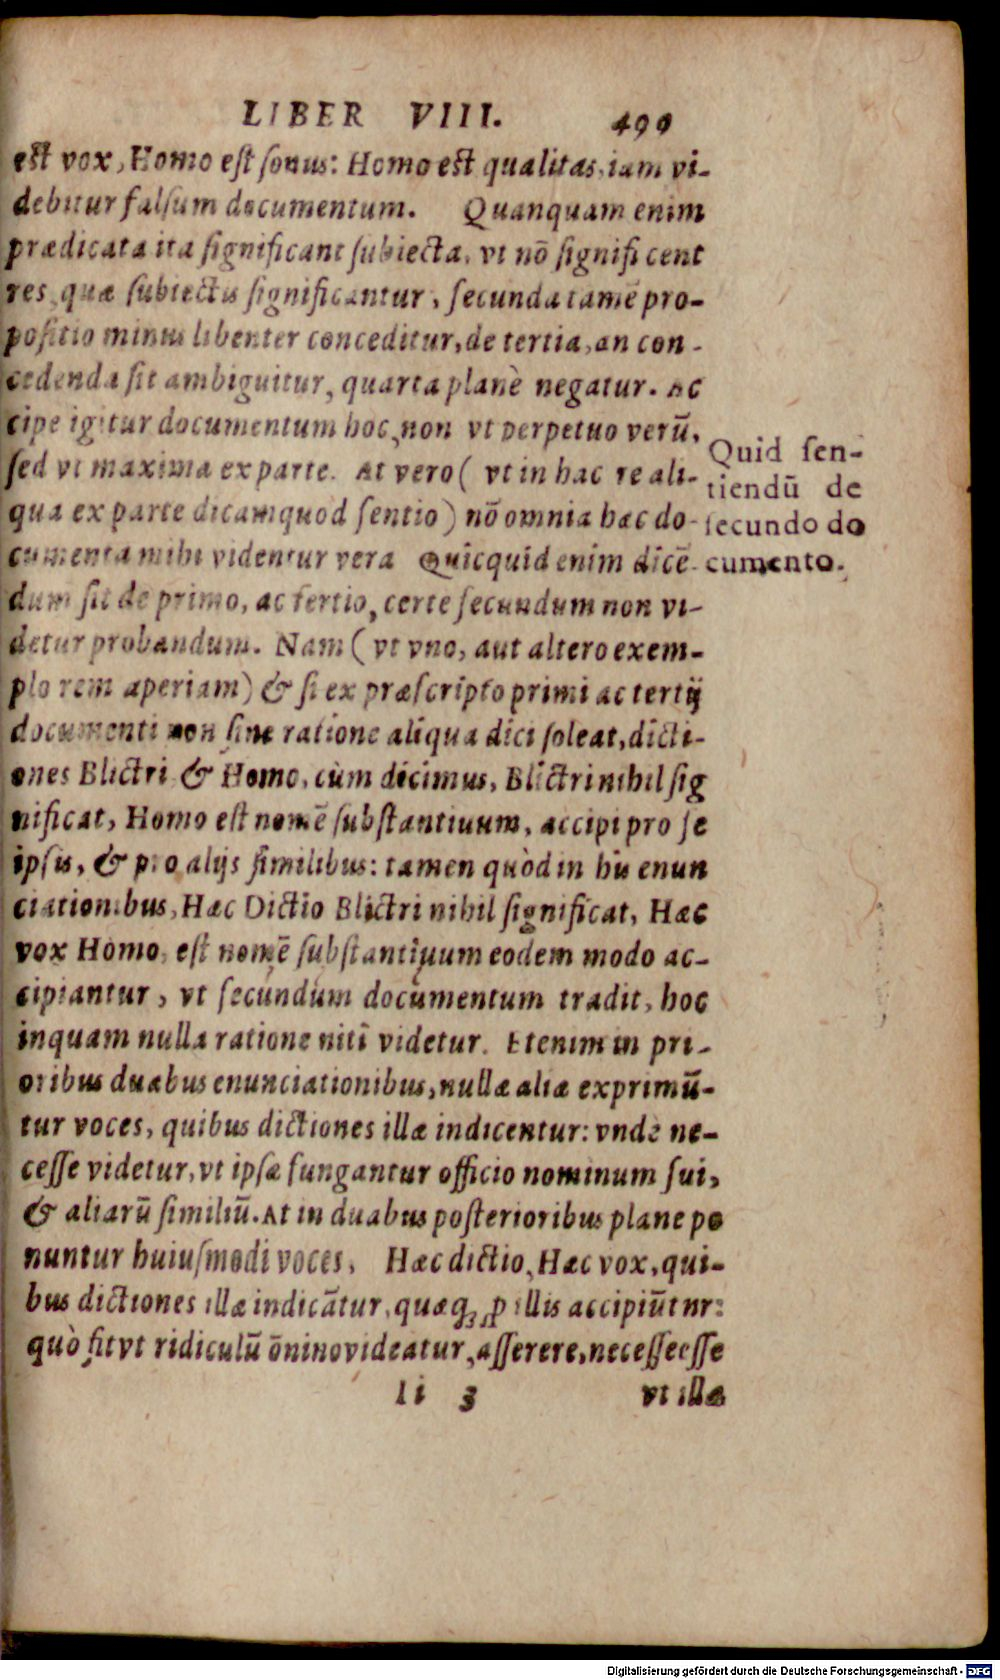 LIBER VIII. 499
est vox, Homo est sonus: Homo est qualitas, iam vi-
debitur falsum documentum. Quanquam enim
prædicata ita significant subiecta, vt nõ significent
res, quæ subiectis significantur, secunda tamẽ pro-
positio minus libenter conceditur, de tertia, an con-
cedenda sit ambigitur, quarta planè negatur. Ac
cipe igitur documentum hoc, non vt perpetuo verũ,
sed vt maxima ex parte. At vero ( vt in hac re ali-
qua ex parte dicam quod sentio ) nõ omnia hæc do-
cumenta mihi videntur vera Quicquid enim dicẽ-
dum sit de primo, ac tertio, certe secundum non vi-
detur probandum. Nam ( vt vno, aut altero exem-
plo rem aperiam ) & si ex præscripto primi ac tertij
documenti non sine ratione aliqua dici soleat, dicti-
ones Blictri & Homo, cùm dicimus, Blictri nihil sig
nificat, Homo est nomẽ substantiuum, accipi pro se
ipsis, & pro alijs similibus: tamen quòd in his enun
ciationibus, Hæc Dictio Blictri nihil significat, Hæc
vox Homo, est nomẽ substantiuum eodem modo ac-
cipiantur, vt secundum documentum tradit, hoc
inquam nulla ratione niti videtur. Etenim in pri-
oribus duabus enunciationibus, nullæ aliæ exprimũ-
tur voces, quibus dictiones illæ indicentur: vnde ne-
cesse videtur, vt ipsæ fungantur officio nominum sui,
& aliarũ similiũ. At in duabus posterioribus plane po
nuntur huiusmodi voces, Hæc dictio, Hæc vox, qui-
bus dictiones illæ indicãtur, quæq; ꝓ illis accipiũtur:
quò fit vt ridiculũ õnino videatur, asserere, necesse esse
Ii 3 vt illæ
Quid sen-
tiendũ de
secundo do
cumento.
Digitalisierung gefördert durch die Deutsche Forschungsgemeinschaft - DFG